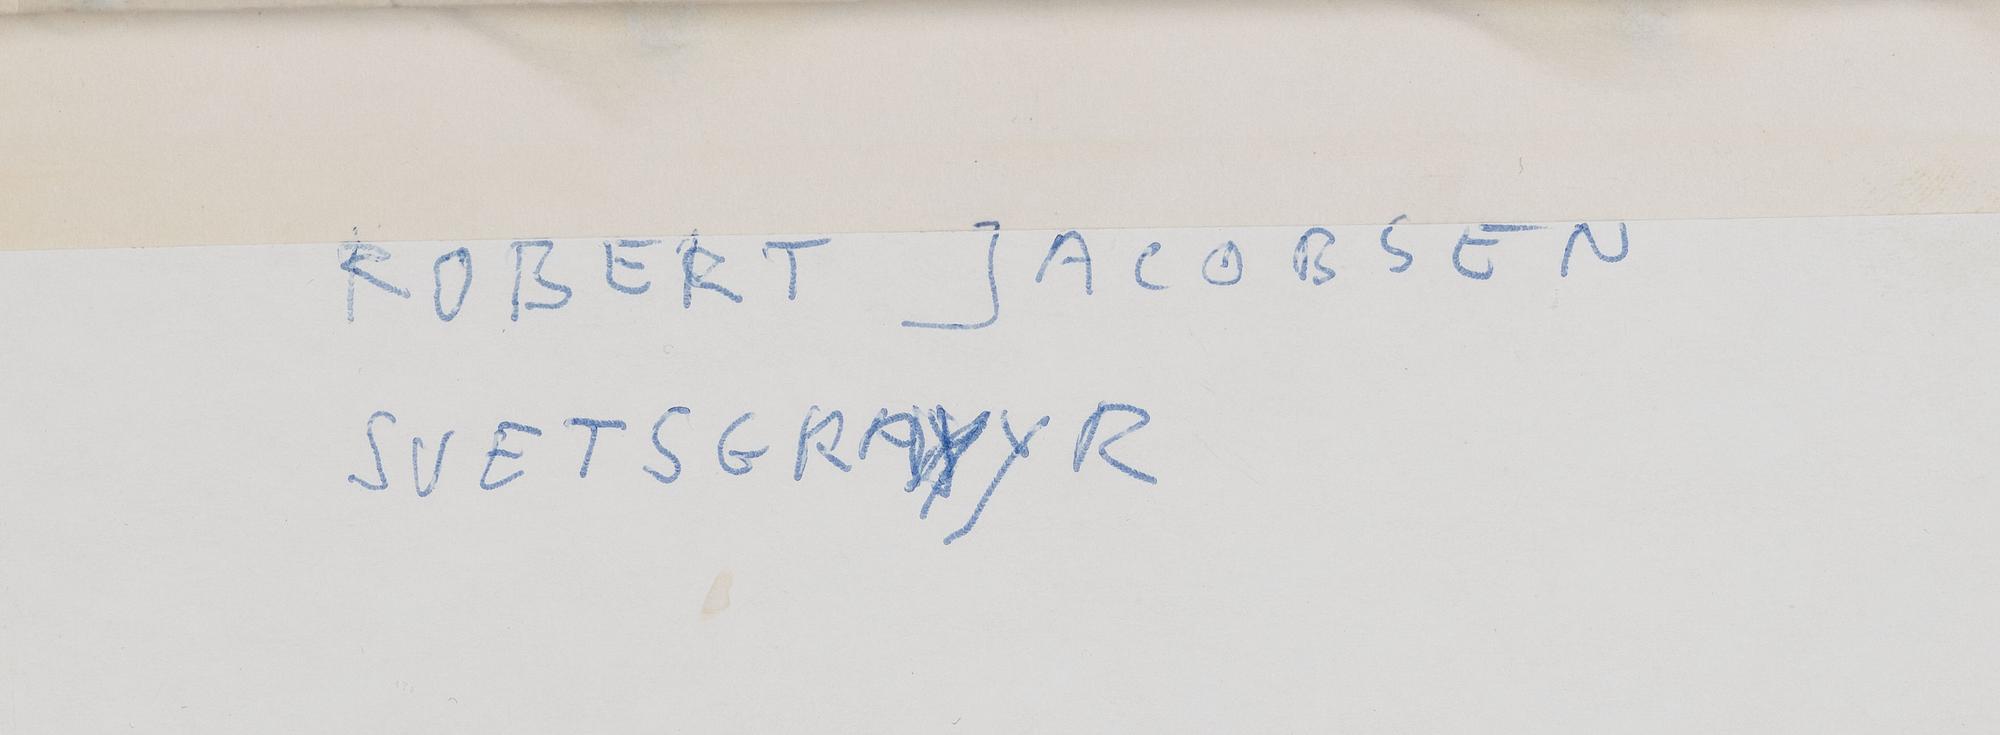 ROBERT JACOBSEN
SVETSGRAVYR